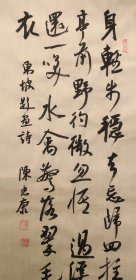 身輕步穩去忘歸四柱
亭前野彴微忽悟過溪
還一笑水禽驚落翠毛
衣
東坡題画詩 陳忠康